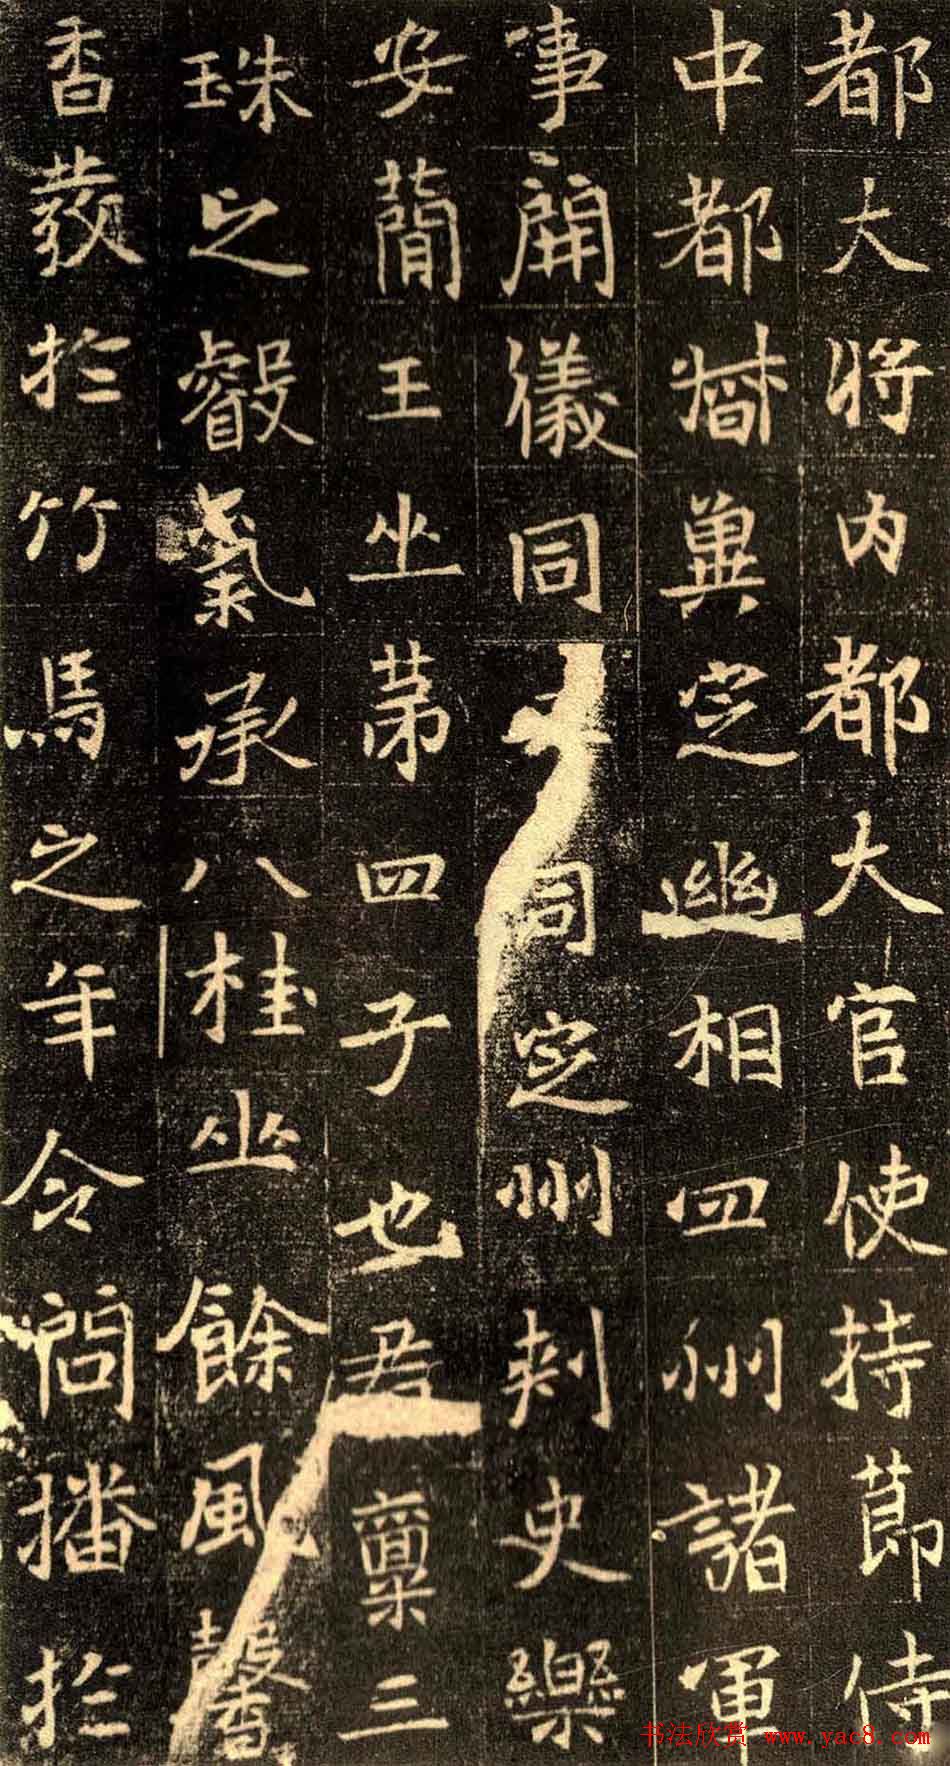 都大將內都大官使持節侍
中都督冀定幽相四州諸軍
事開儀同同定州刺史樂
安簡王㞢第四子也君稟三
珠之叡氣承八桂㞢餘風馨
香發於竹馬之年令問播於
书法欣赏 www.yac8.com